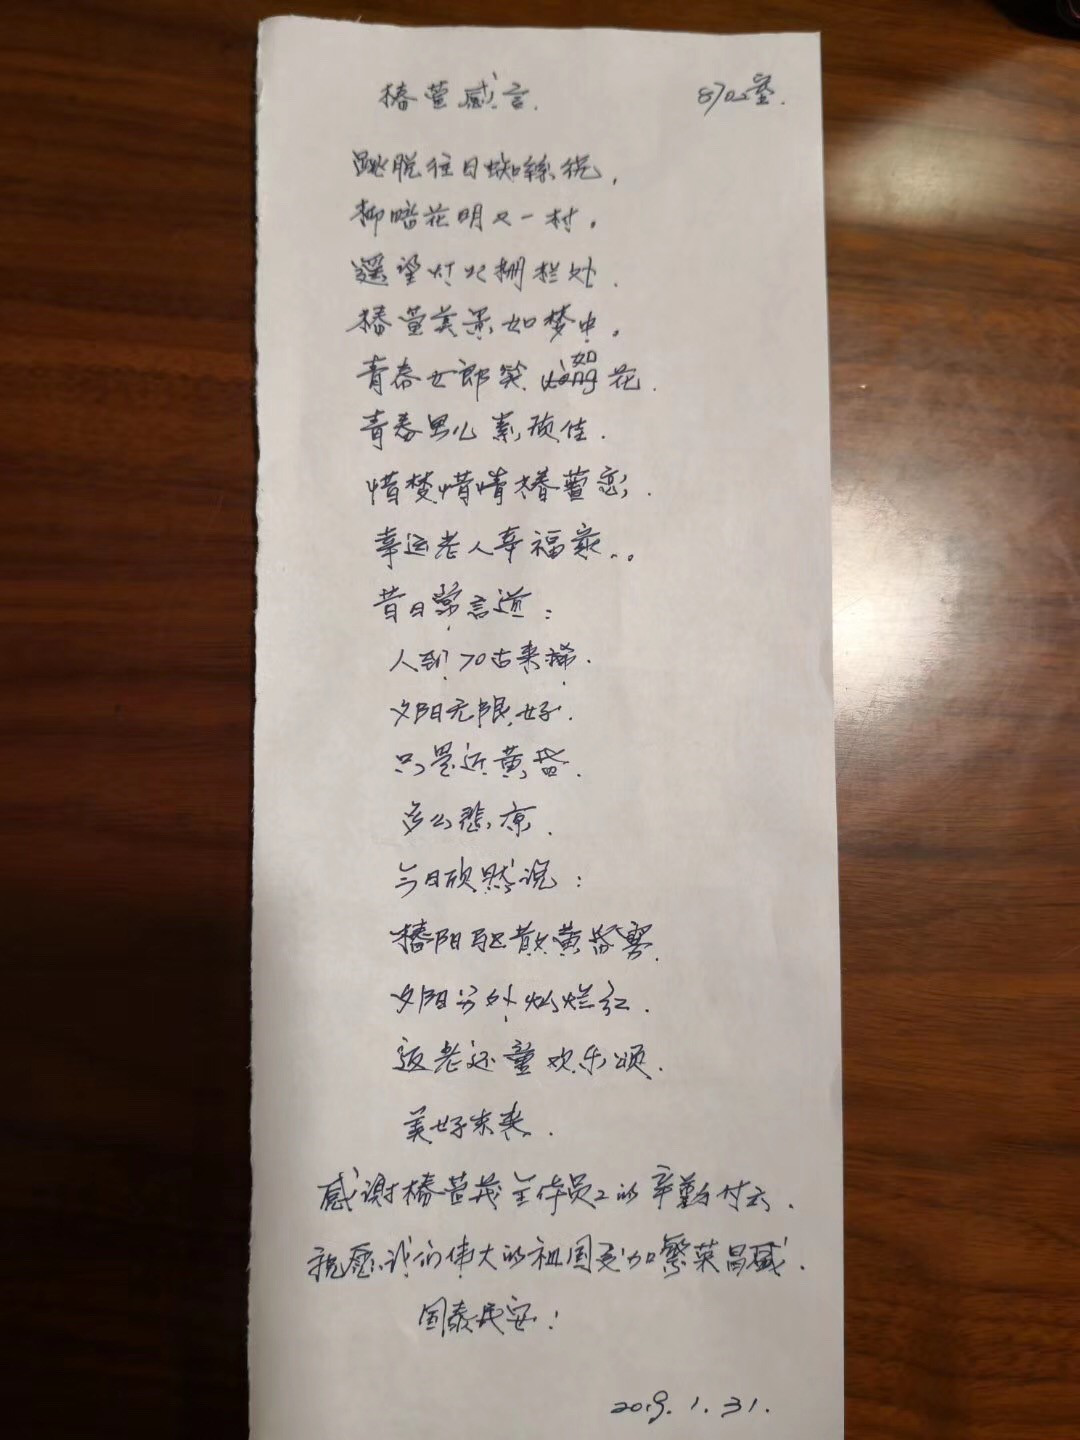 椿萱感言.
870
跳脱往日蜘絲绕,
柳暗花明又一村。
遥望灯火栅栏处.
椿萱美景如梦中。
青春女郎笑如花.
青春男儿素颜佳.
惜梦惜情椿萱恋.
幸运老人幸福家..。
昔日常言道:
人到70古来稀.
夕阳无限好.
只是近黄昏.
多么悲凉.
今日欣然说:
椿阳驱散黄昏雾.
夕阳另外灿烂红.
返老还童欢乐颂.
美好未来.
感谢椿萱茂全体员工的辛勤付出.
祝愿我们伟大的祖国更加繁荣昌盛.
国泰民安!
2019.1.31.